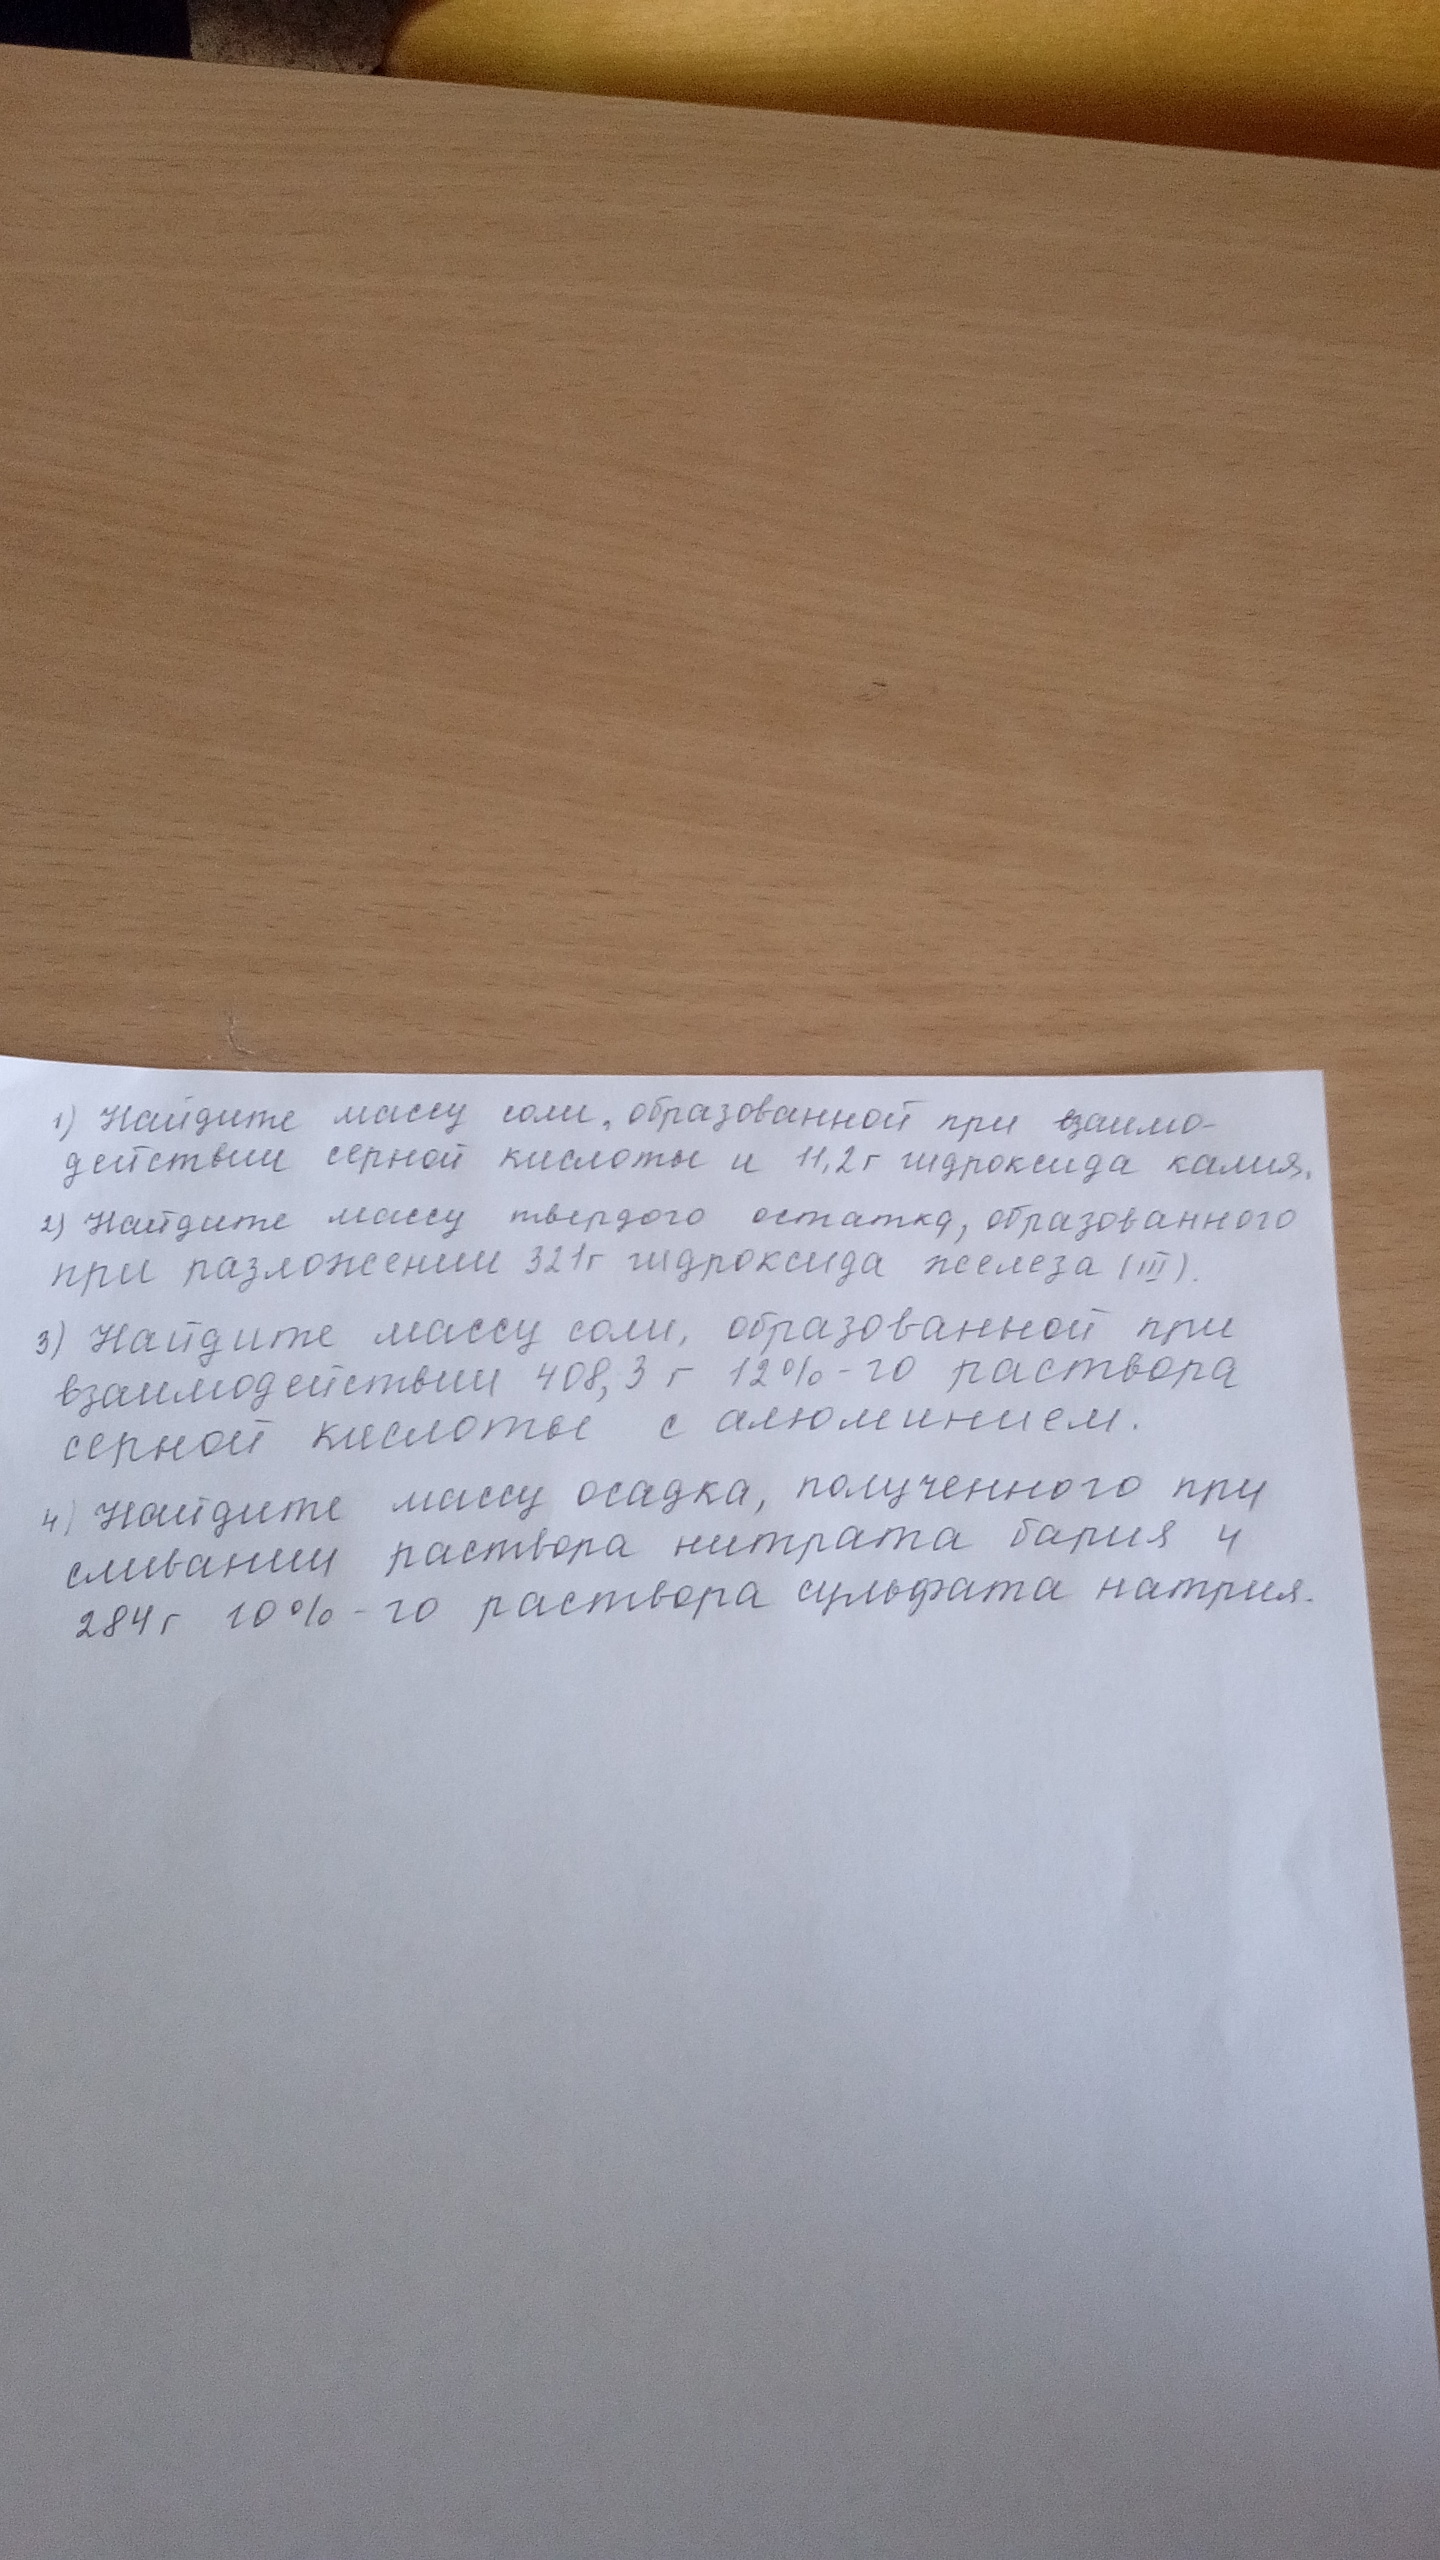 1) Найдите массу соли, образованной при взаимо-
действии серной кислоты и 11,2г гидроксида калия.
2) Найдите массу твердого остатка, образованного
при разложении 321г гидроксида железа (III).
3) Найдите массу соли, образованной при
взаимодействии 408,3 г 12%-го раствора
серной кислоты с алюминием.
4) Найдите массу осадка, полученного при
сливании раствора нитрата бария и
284г 10%-го раствора сульфата натрия.